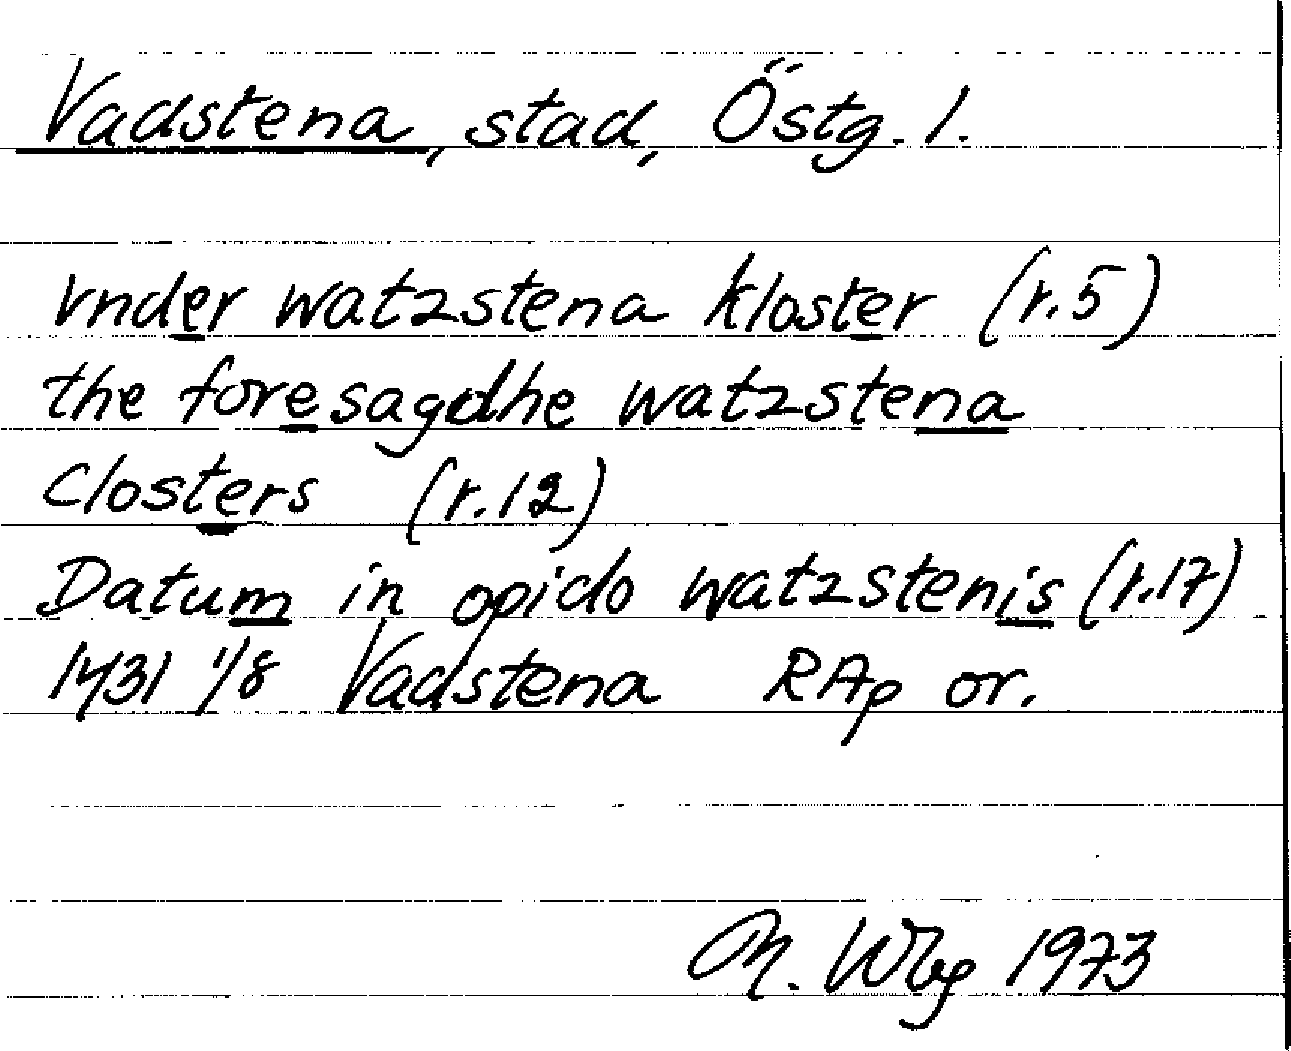 Vadstena, stad, Östg. l.
vnder watzstena kloster (r.5)
the foresagdhe watzstena
closters (r.12)
Datum in opido watzstenis (r.17)
1431 1/8 Vadstena RAp or.
M. Wbg 1973